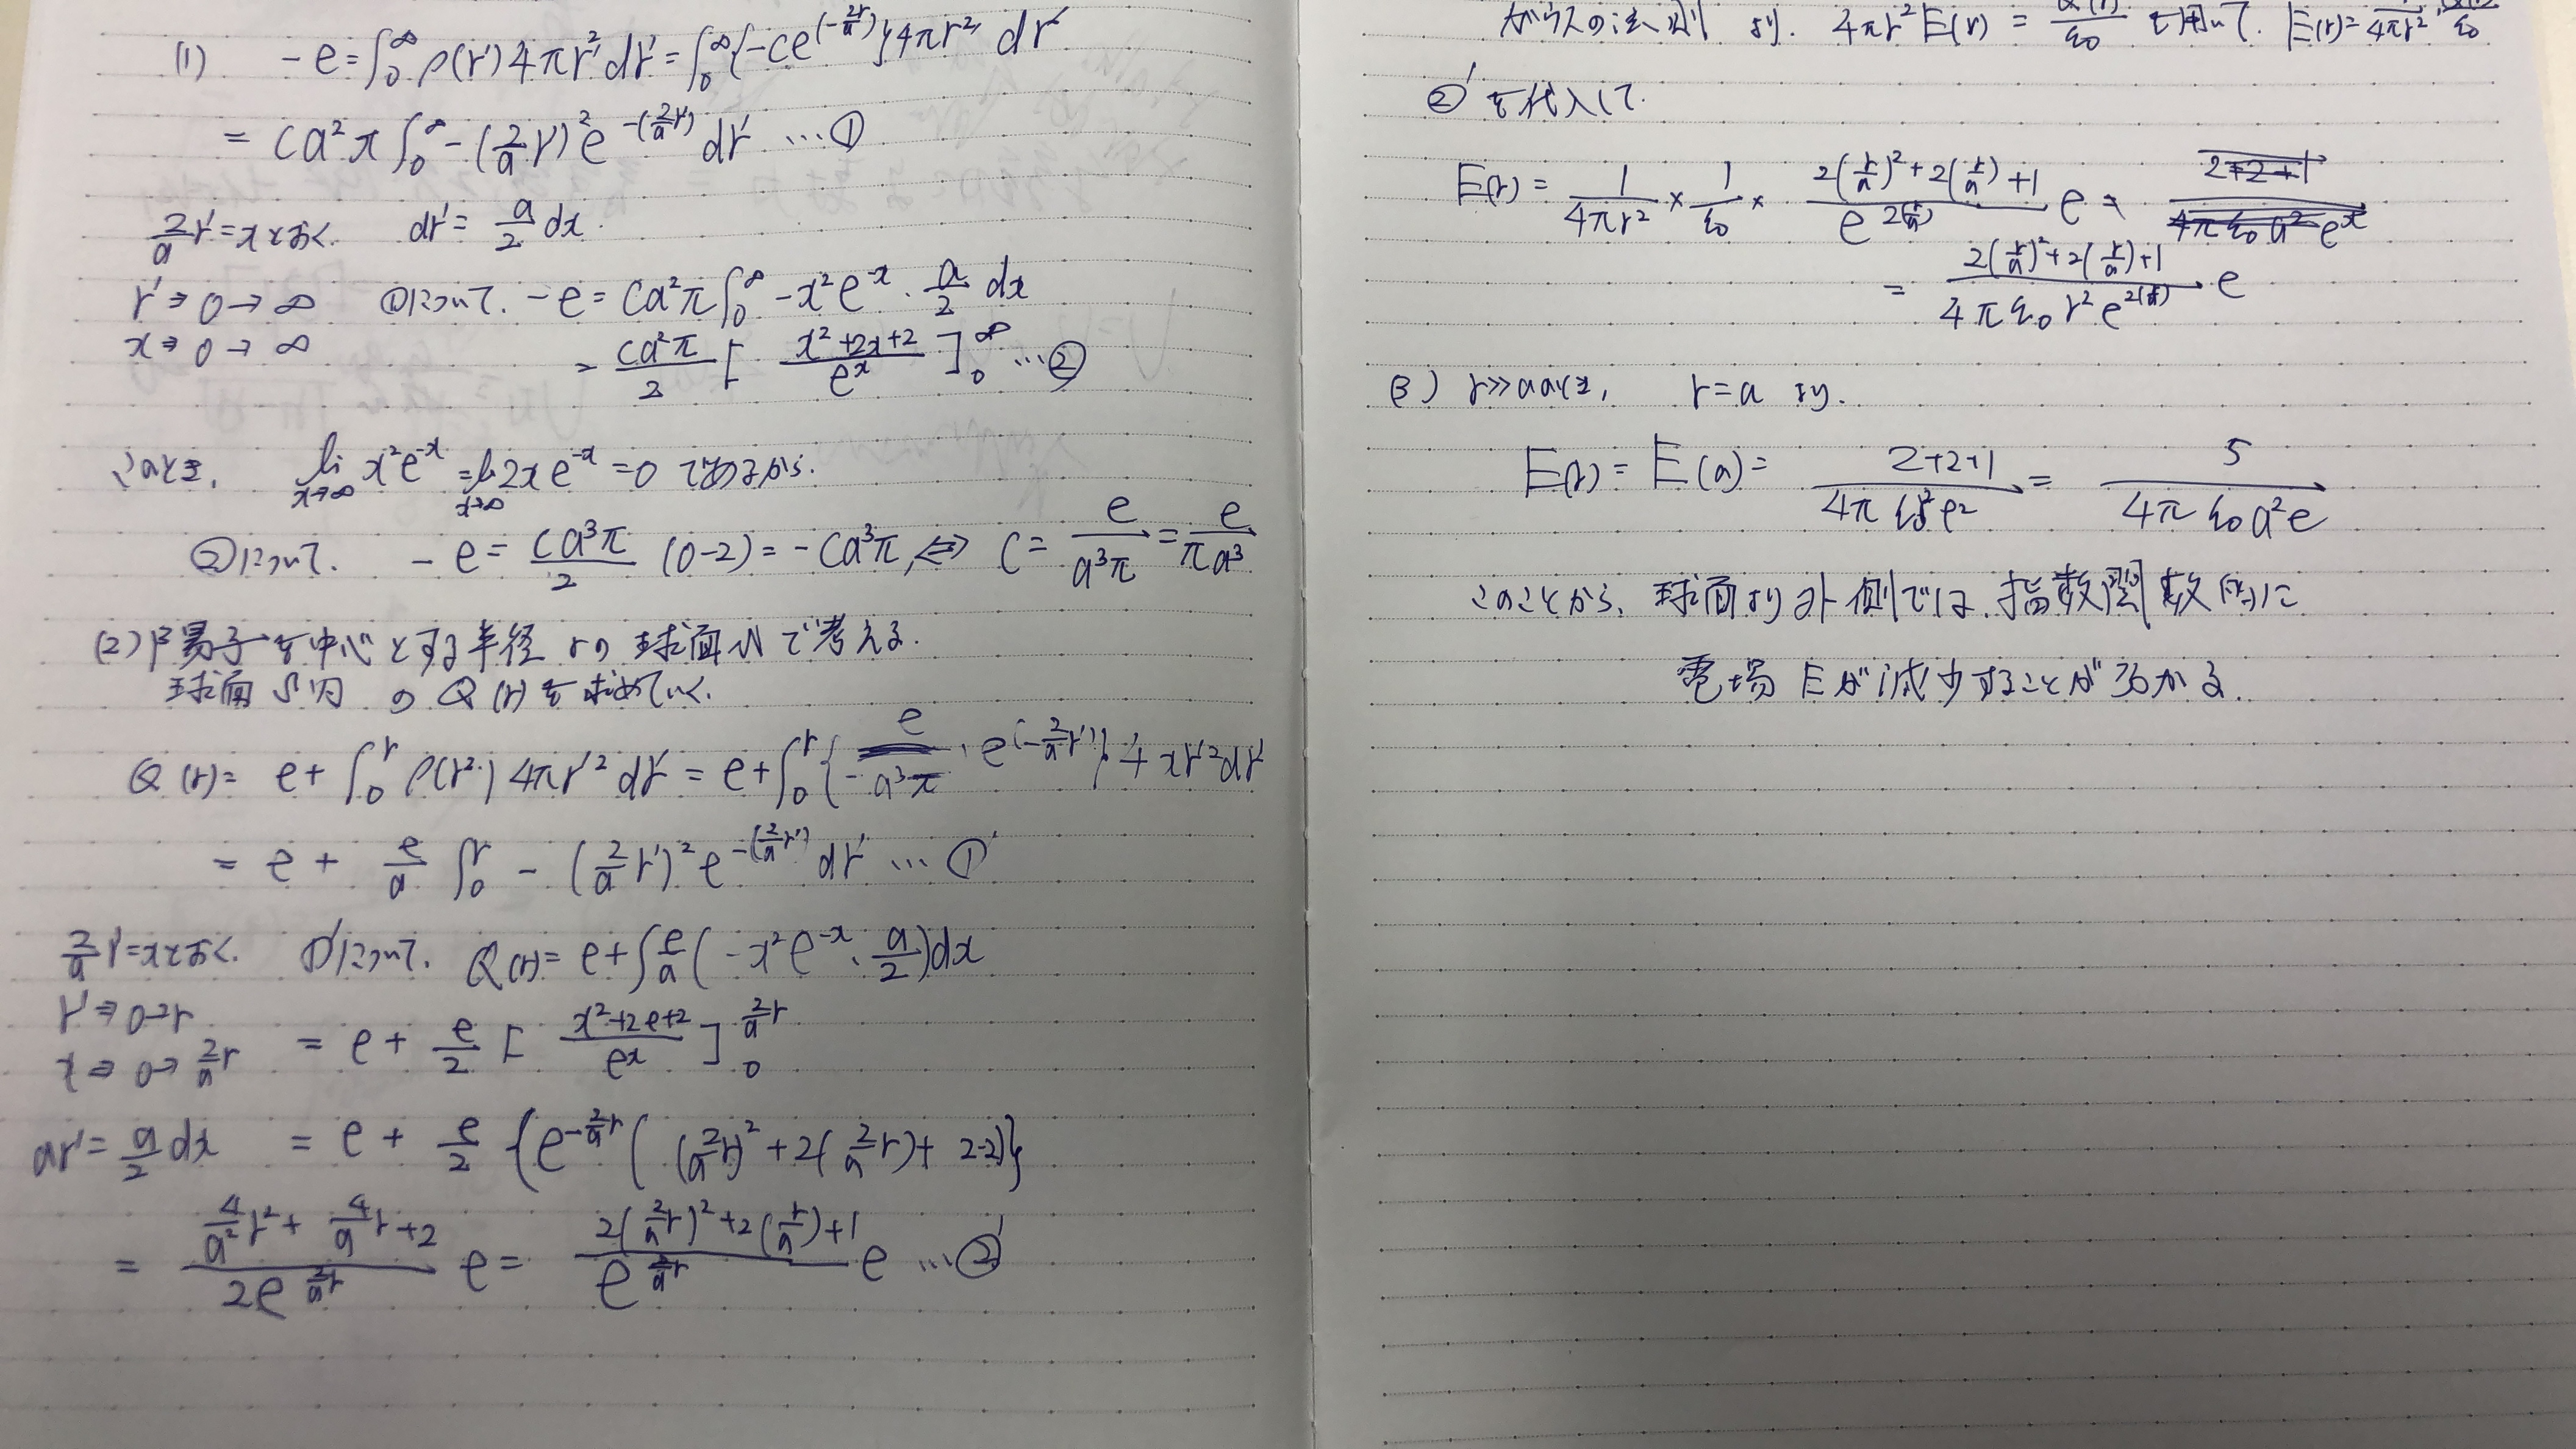 (1) -e = ∫₀^∞ ρ(r')4πr'²dr' = ∫₀^∞ {-ce^(-2r'/a)}4πr'² dr'
= ca²π ∫₀^∞ -(2/a r')² e^-(2/a r') dr' …①
2/a r'=xとおく. dr' = a/2 dx.
r' ⇒ 0→∞ ①について. -e = ca²π ∫₀^∞ -x²e^-x · a/2 dx
x ⇒ 0→∞ = ca²π/2 [ (x²+2x+2)/e^x ]₀^∞ …②
このとき, lim x→∞ x²e^-x = lim x→∞ 2xe^-x = 0 であるから.
②について. -e = ca³π/2 (0-2) = -ca³π, ⇔ C = e/a³π = e/πa³
(2) 陽子を中心とする半径rの球面Sで考える.
球面S内のQ(r)を求めていく.
Q(r) = e + ∫₀^r ρ(r²)4πr'²dr' = e + ∫₀^r {- e/a³π · e^(-2/a r')} 4πr'²dr'
= e + e/a ∫₀^r -(2/a r')² e^-(2/a r') dr' …①'
2/a r'=xとおく. ①'について. Q(r) = e + ∫ e/a (-x²e^-x · a/2)dx
r' ⇒ 0→r
x ⇒ 0→2/a r = e + e/2 [ (x²+2e+2)/e^x ]₀^(2/a r)
dr' = a/2 dx = e + e/2 {e^(-2/a r) ((2/a r)² + 2(2/a r) + 2-2)}
= (4/a² r² + 4/a r + 2)/(2e^(2/a r)) e = (2(2/a r)² + 2(r/a) + 1)/(e^(2/a r)) e …②'
ガウスの法則より. 4πr²E(r) = Q(r)/ε₀ を用いて. E(r) = 1/4πr² · Q(r)/ε₀
②'を代入して.
E(r) = 1/4πr² × 1/ε₀ × (2(r/a)²+2(r/a)+1)/(e^2(r/a)) e =
= (2(r/a)²+2(r/a)+1)/(4πε₀r²e^2(r/a)) · e
(3) r≫aのとき, r=a より.
E(r) = E(a) = (2+2+1)/(4πε₀a²e²) = 5/(4πε₀a²e)
このことから, 球面より外側では, 指数関数的に
電場Eが減少することがわかる.